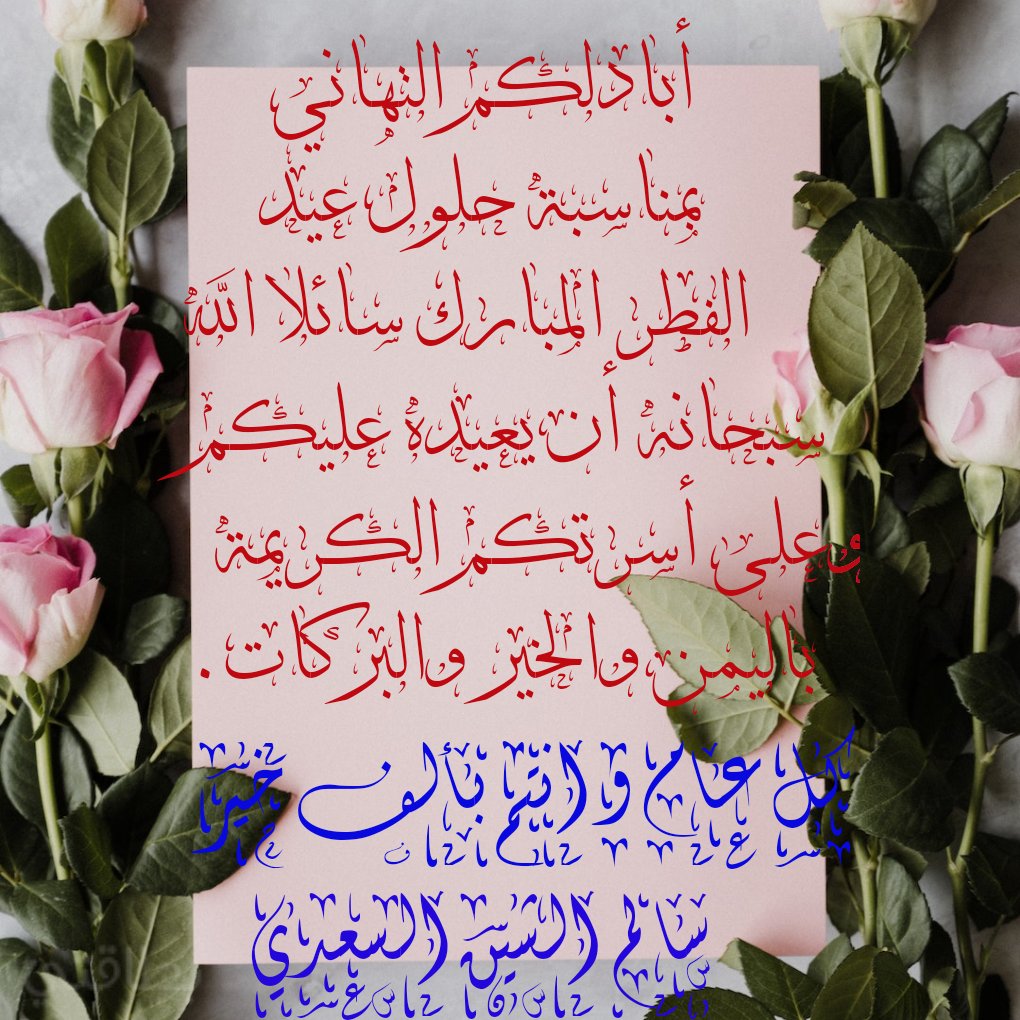 أبادلكم التهاني
بمناسبة حلول عيد
الفطر المبارك سائلا الله
سبحانه أن يعيده عليكم
وعلى أسرتكم الكريمة
باليمن والخير والبركات .
كل عام و انتم بألف خير
سالم السعدي